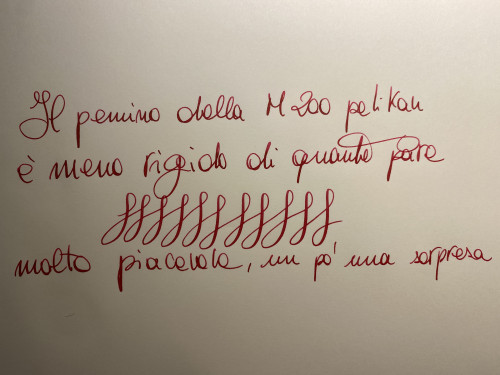 Il pennino della M200 pelikan
è meno rigido di quanto pare
ffffffffffff
molto piacevole, un pò una sorpresa